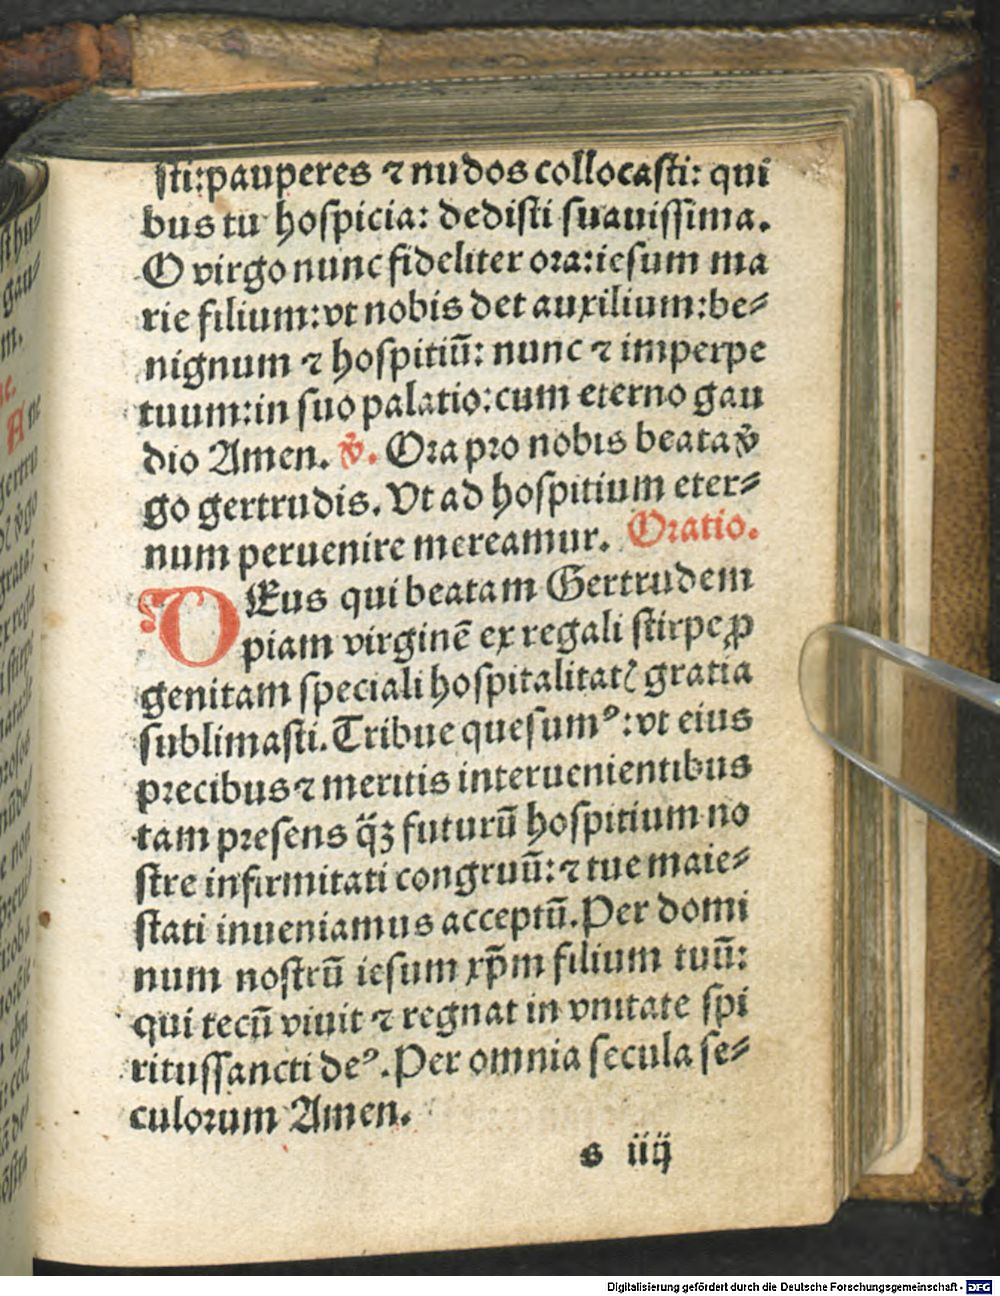 sti:pauperes ⁊ nudos collocasti: qui
bus tu hospicia: dedisti suauissima.
O virgo nunc fideliter ora:iesum ma
rie filium:vt nobis det auxilium:be⸗
nignum ⁊ hospitiū: nunc ⁊ imperpe
tuum:in suo palatio:cum eterno gau
dio Amen. v̄. Ora pro nobis beata v̄
go gertrudis. Vt ad hospitium eter⸗
num peruenire mereamur. Oratio.
DEus qui beatam Gertrudem
piam virginē ex regali stirpe ꝓ
genitam speciali hospitalitatꝭ gratia
sublimasti. Tribue quesumꝰ: vt eius
precibus ⁊ meritis interuenientibus
tam presens q̄ꝫ futurū hospitium no
stre infirmitati congruū: ⁊ tue maie⸗
stati inueniamus acceptū. Per domi
num nostrū iesum xp̄m filium tuū:
qui tecū viuit ⁊ regnat in vnitate spi
ritussancti deꝰ. Per omnia secula se⸗
culorum Amen.
s iiij
Digitalisierung gefördert durch die Deutsche Forschungsgemeinschaft - DFG